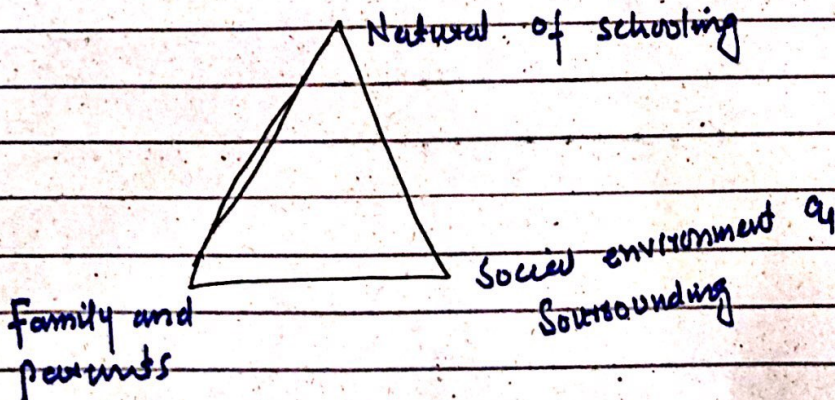 Natural of schooling
Social environment
Sorrounding
Family and
parents